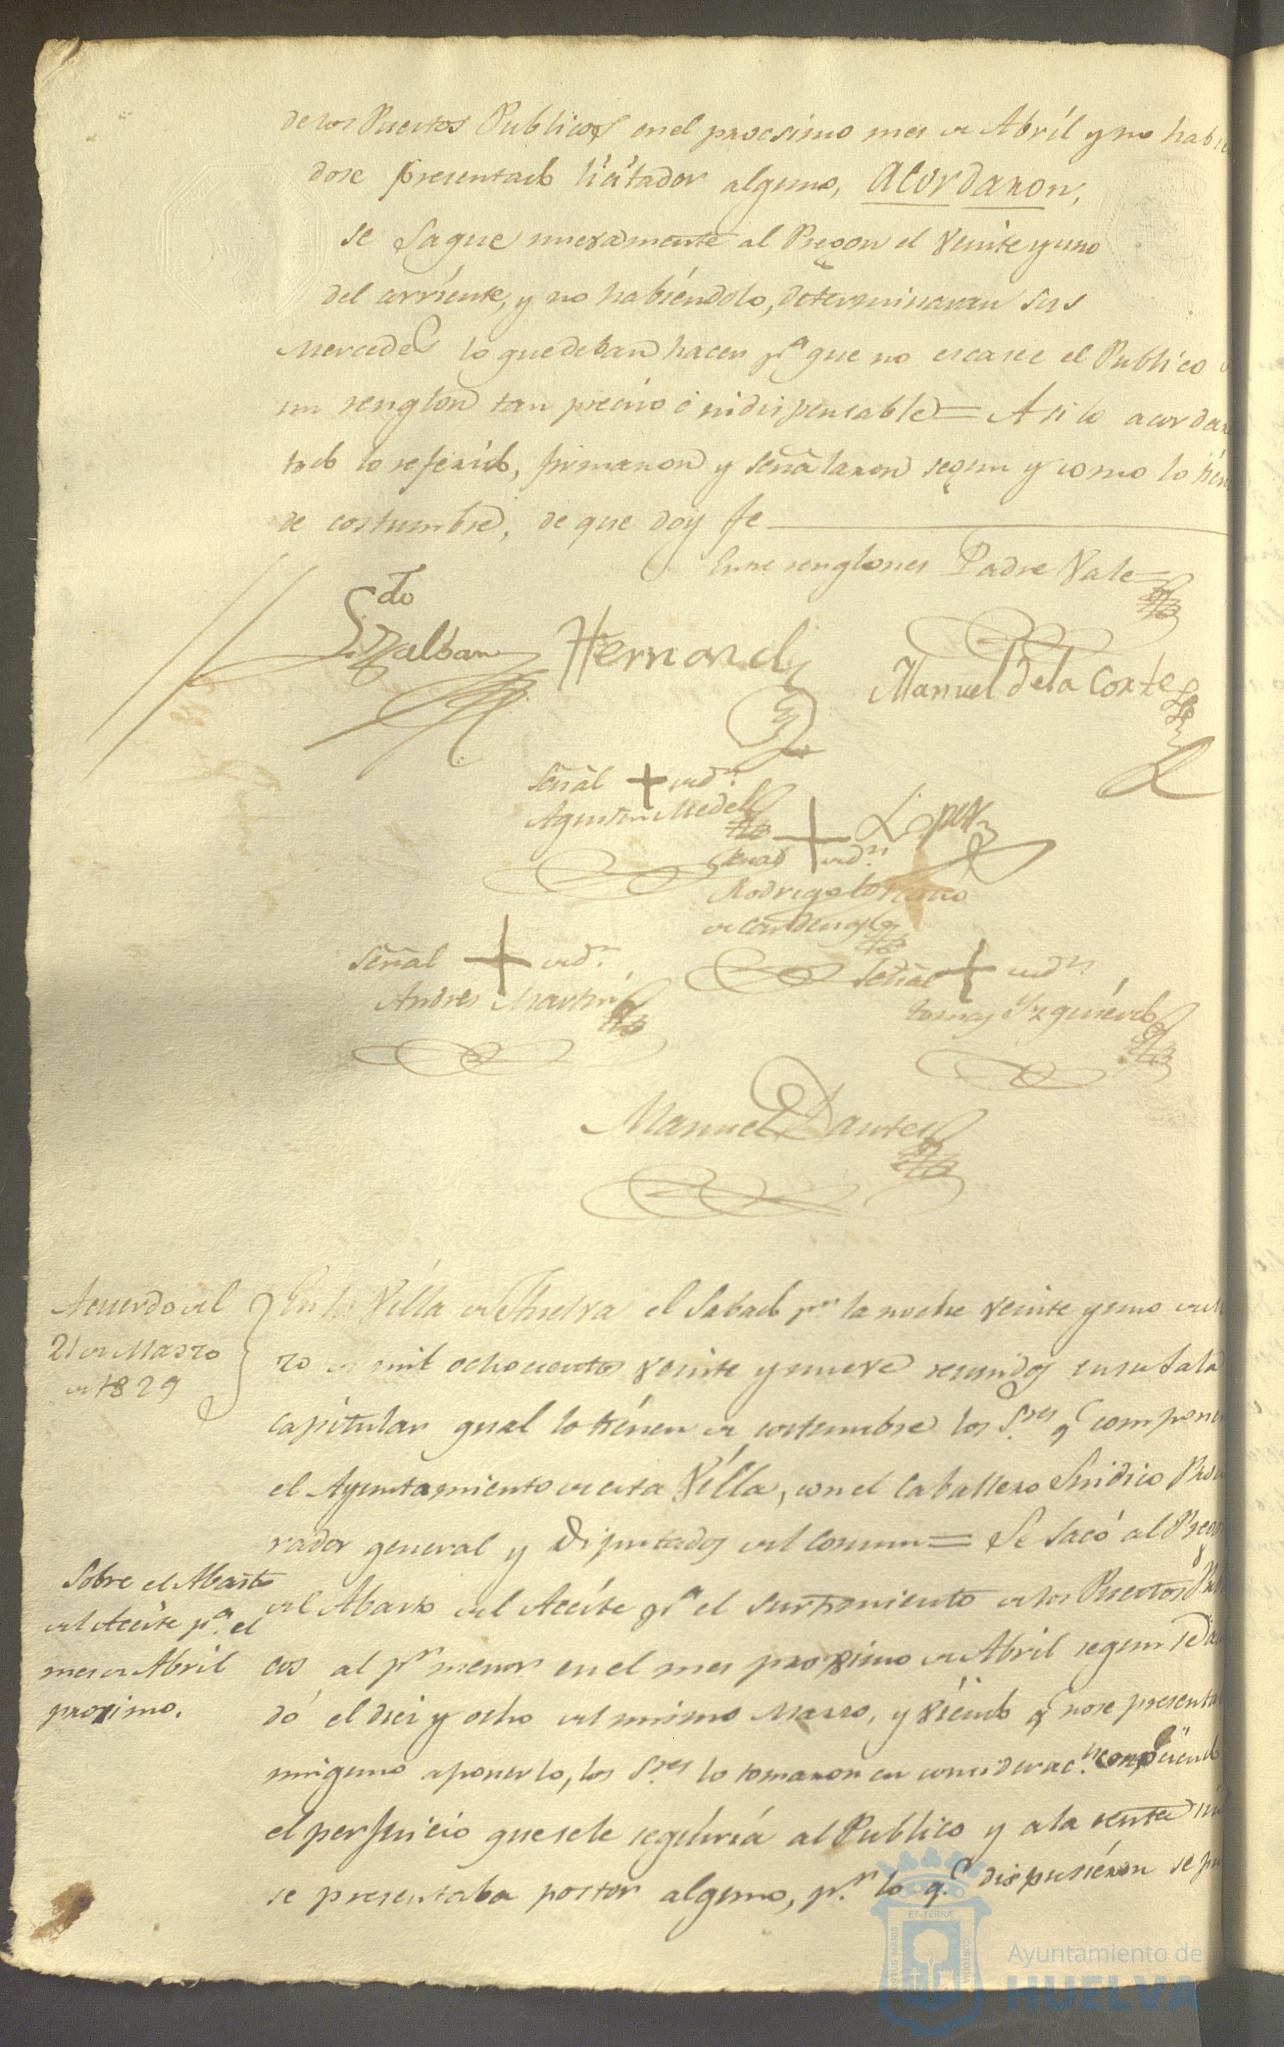 de los Puestos Publicos en el procsimo mes de Abril y no habien
dose presentado licitador alguno, Acordaron,
se saque nuevamente al Pregon el veinte y uno
del corriente, y no habiendolo, determinaran sus
Mercedes lo que deban hacer pª que no escasee el Publico
un renglon tan preciso é indispensable = Asi lo acordar
todo lo referido, firmaron y señalaron segun y como lo tien
de costumbre, de que doy fe
Entre renglones Padre Vale
Hernand
Manuel de la Corte
Señal + del
Agustin Medel
Lopez
Señal + del
Rodrigo
de Cardenas
Señal + del
Andres Martin
Señal + del
Tomas Yzquierdo
Manuel Dantes
Acuerdo del
21 de Marzo
de 1829
En la Villa de Huelva el Sabado pr la noche veinte y uno de
zo de mil ochocientos veinte y nueve reunidos en su Sala
capitular qual lo tienen de costumbre los Sres q componen
el Ayuntamiento de esta Villa, con el Caballero Sindico Procu
rador general y Diputados del Comun = Se sacó al Pregon
Sobre el Abasto
del Aceite pª el
mes de Abril
proximo.
el Abasto del Aceite pª el surtimiento de los Puestos Publi
cos al pr menor en el mes proximo de Abril segun se
dó el diez y ocho del mismo Marzo, y viendo q no se presentaba
ninguno aponerlo, los Sres lo tomaron en consideracn
el perjuicio que se le seguiria al Publico y a la renta
se presentaba postor alguno, pr lo q.e dispusieron se
Ayuntamiento de
HUELVA